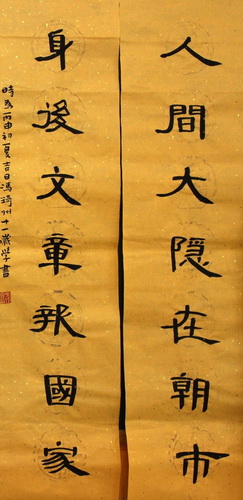 人間大隱在朝市
身後文章報國家
時為丙申初夏吉日馮琦州十一歲學書